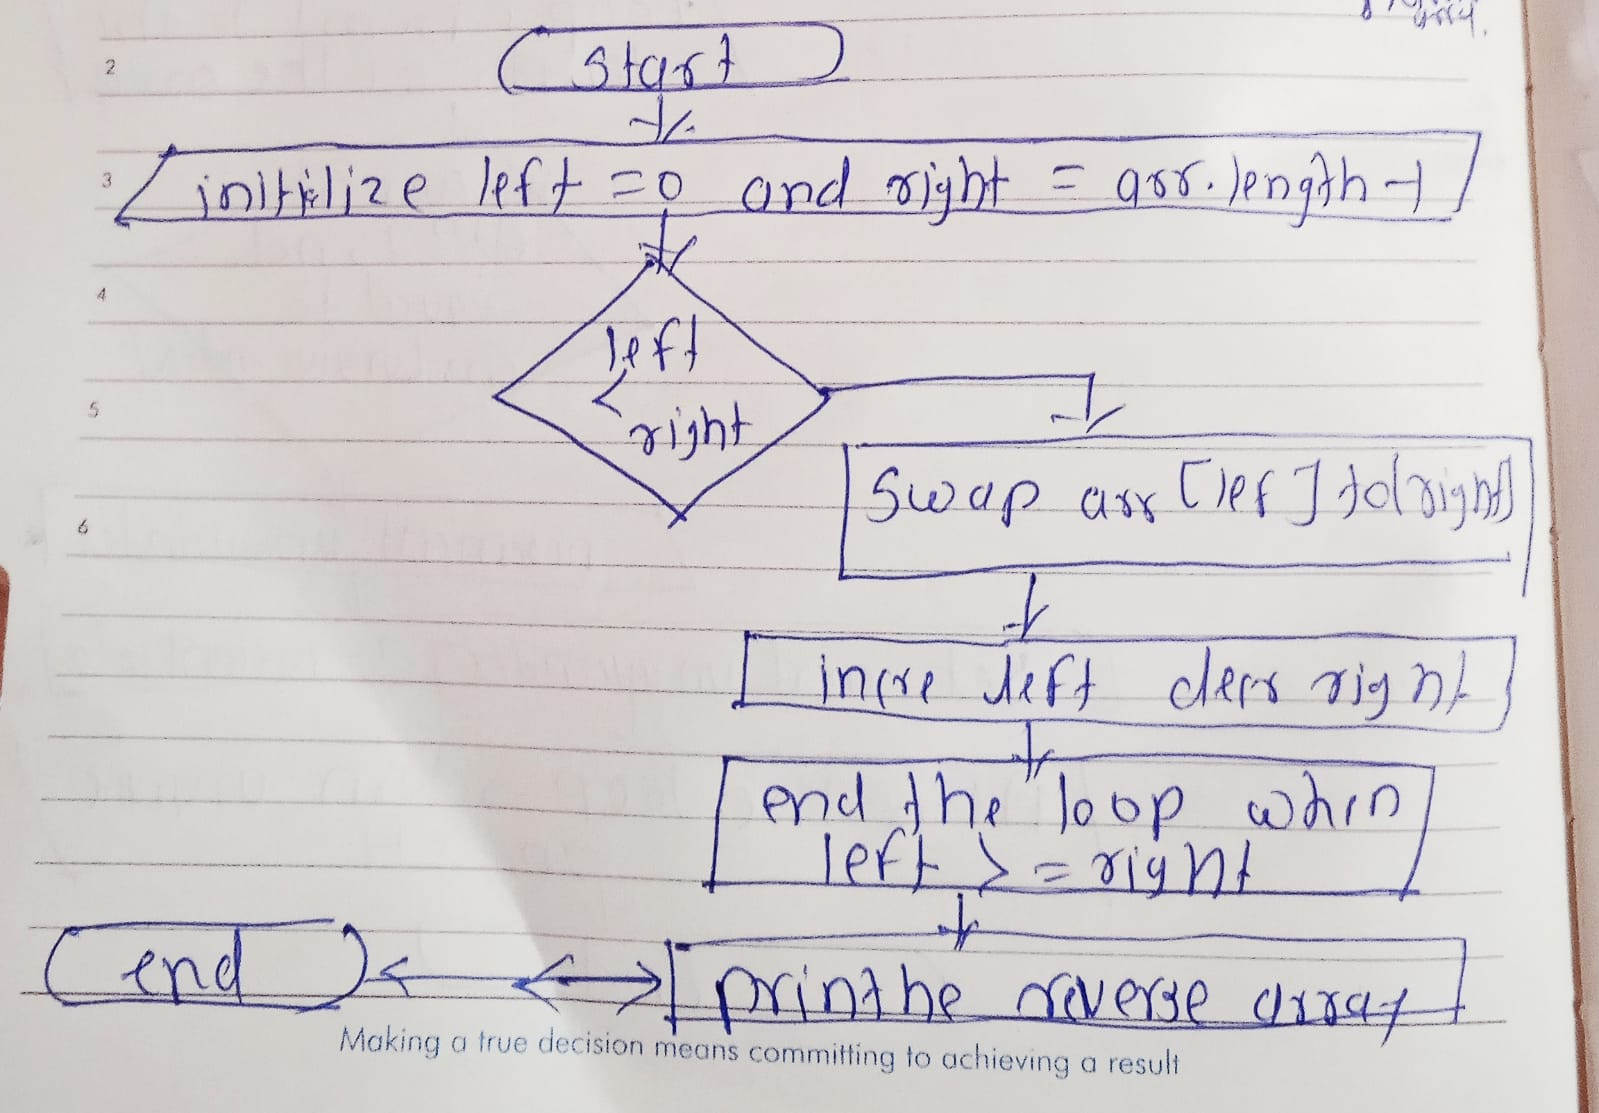 2
start
3
initilize left =0 and right = arr.length-1
4
left
<
5
right
swap arr [lef] to[right]
6
incre left decr right
end the loop when
left >= right
end
printhe reverse array
Making a true decision means committing to achieving a result